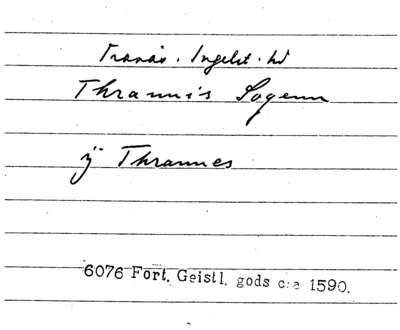 Tranås. Ingelst. hd
Thrannis Sogenn
ÿ Thrannes
6076 Fort. Geistl. gods c:a 1590.